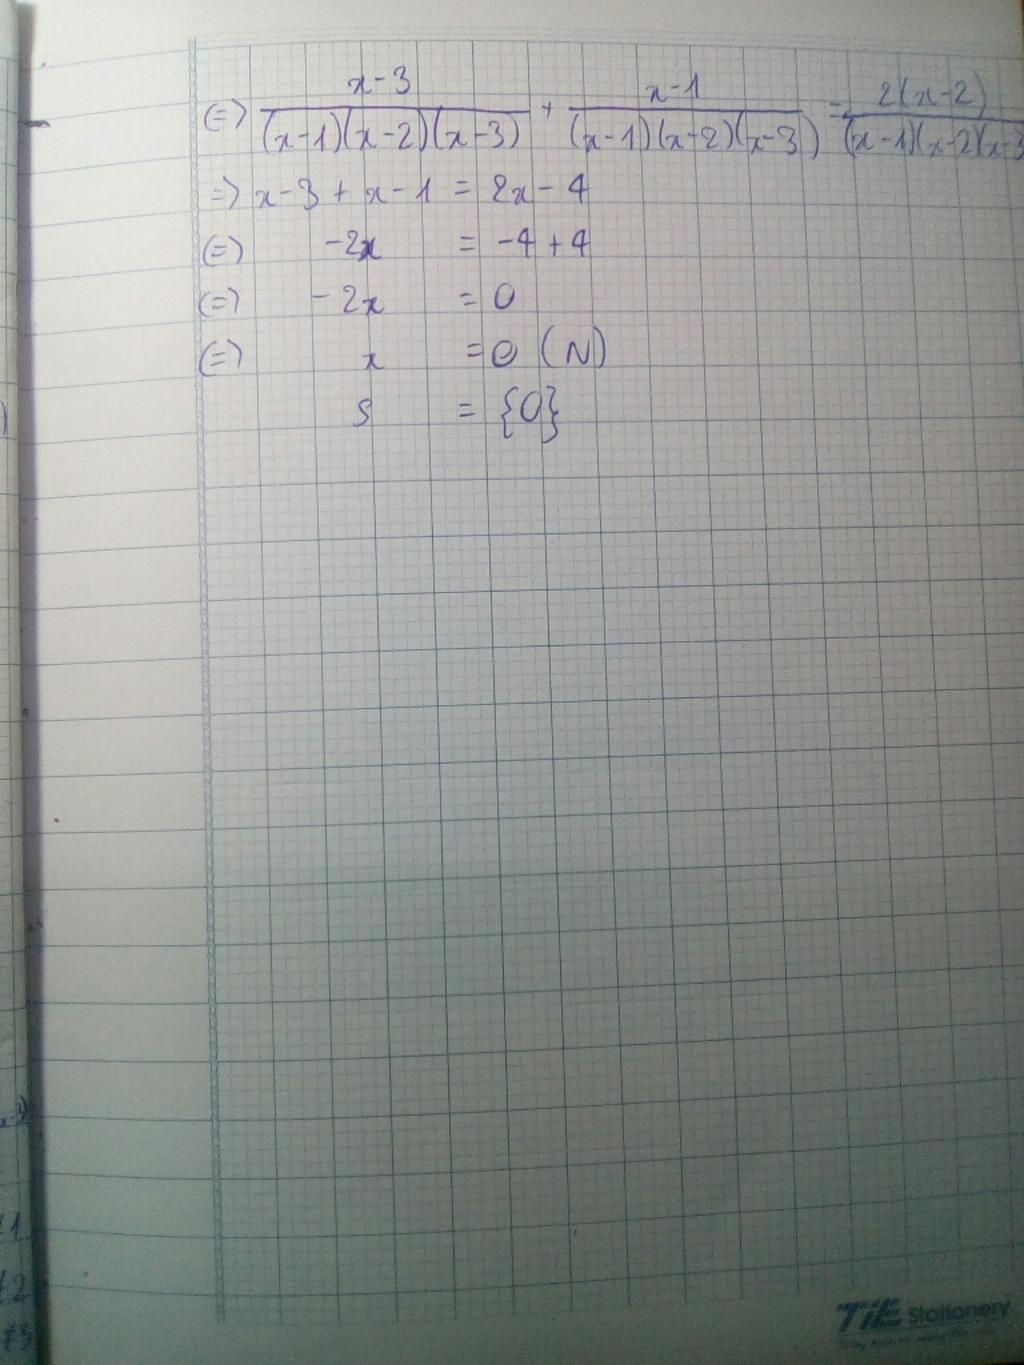 (=) x-3 / (x-1)(x-2)(x-3) + x-1 / (x-1)(x-2)(x-3) = 2(x-2) / (x-1)(x-2)(x-3
=> x-3 + x-1 = 2x-4
(=) -2x = -4+4
(=) -2x = 0
(=) x = 0 (N)
S = {0}
TiE Stationery